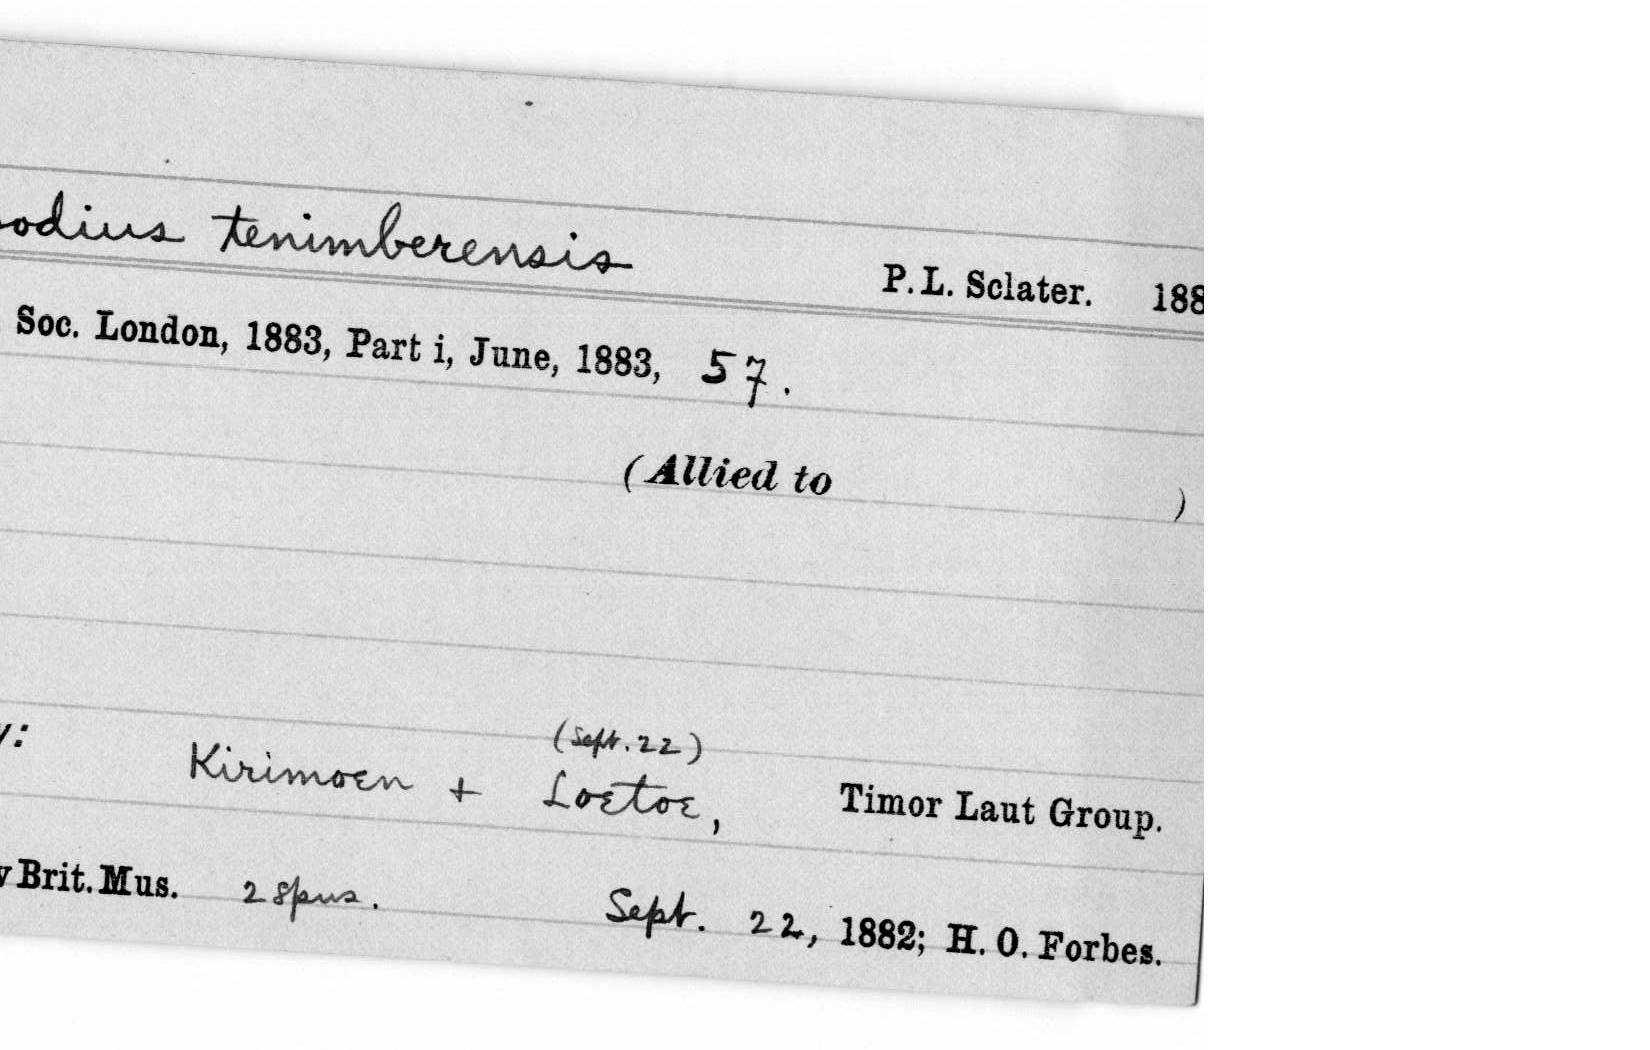 odius tenimberensis P. L. Sclater. 188
Soc. London, 1883, Part i, June, 1883, 57.
(Allied to )
y:
(Sept. 22)
Kirimoen + Loetoe, Timor Laut Group.
Brit. Mus. 2 spns. Sept. 22, 1882; H. O. Forbes.